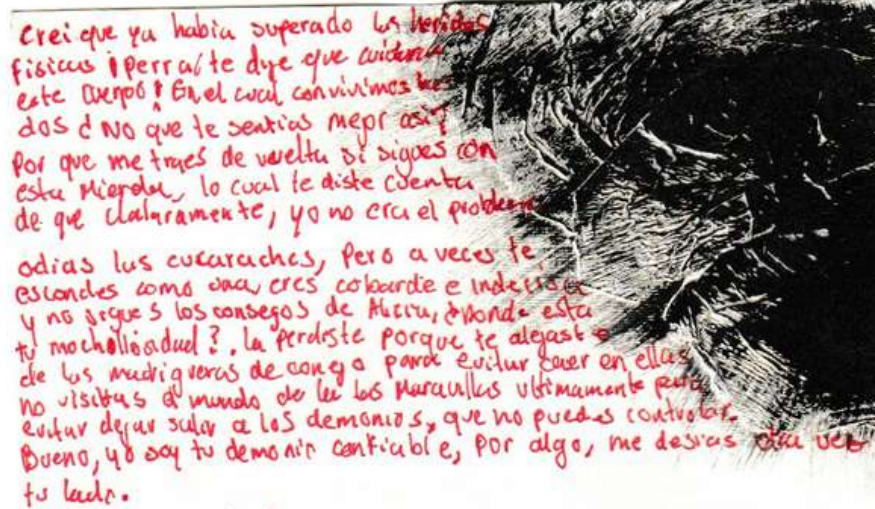 Crei que ya habia superado las heridas
fisicas ¡Perra! te dije que cuidaras
este cuerpo! En el cual convivimos las
dos ¿No que te sentias mejor asi?
Por que me traes de vuelta si sigues con
esta Mierda, lo cual te diste cuenta
de que claramente, yo no era el problema
odias las cucarachas, Pero a veces te
escondes como una, eres cobarde e indecisa
y no sigues los consejos de Alicia, ¿Donde esta
tu ?. La perdiste porque te alejaste
de las madrigueras de conejo para evitar caer en ellas
no visitas el mundo de las Maravillas ultimamente para
evitar dejar salir a los demonios, que no puedes controlar.
Bueno, yo soy tu demonio confiable, Por algo, me otra vez
tu lado.